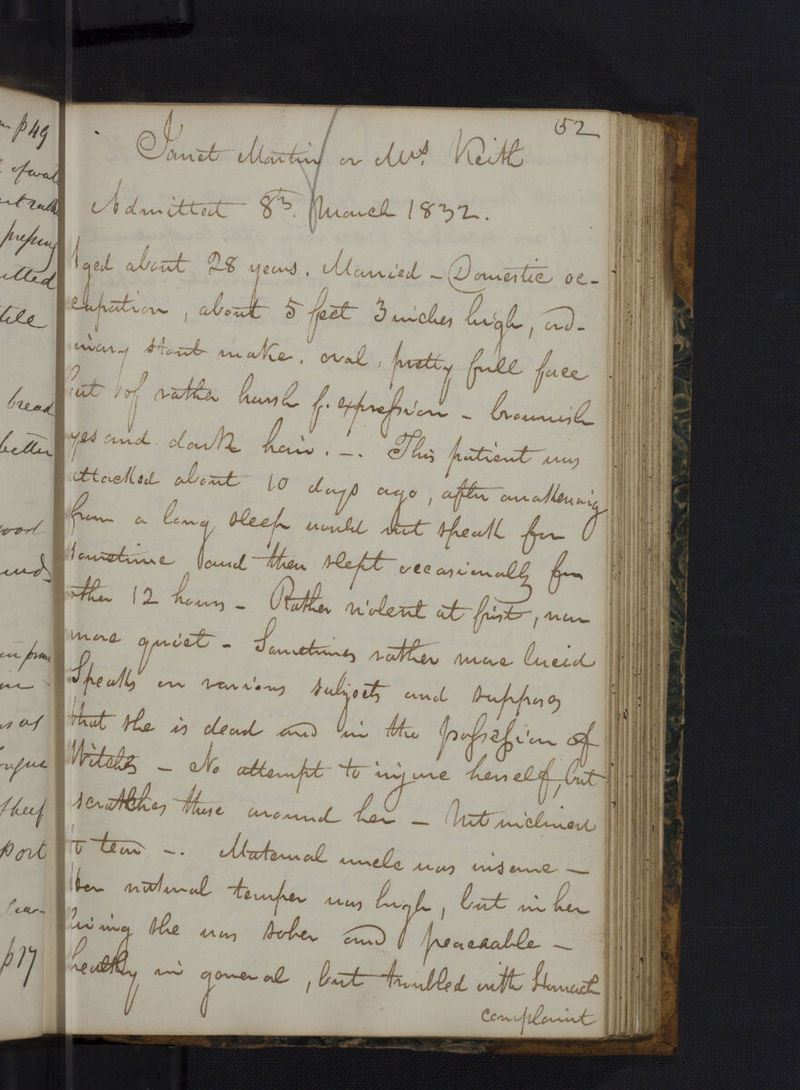 52
Janet Martin or Mrs. Keith
Admitted 8th. March 1832.
Aged about 28 years. Married - Domestic oc-
cupation, about 5 feet 3 inches high, ord-
inary stout make. oval, pretty full face
but of rather harsh f. expression - brownish
eyes and dark hair. -. This patient was
attacked about 10 days ago, after an awakening
from a long sleep would not speak for
sometime and then slept occasionally for
other 12 hours - Rather violent at first, now
more quiet - Sometimes rather more lucid
Speaks on various subjects and supposes
that she is dead and in the possession of
Witches - No attempt to injure herself, but
scratches those around her - Not inclined
to tear -. Maternal uncle was insane -
Her natural temper was high, but in her
living she was sober and peaceable -
healthy in general, but troubled with Stomach
complaint
p49
bread
better
beef
port
p17